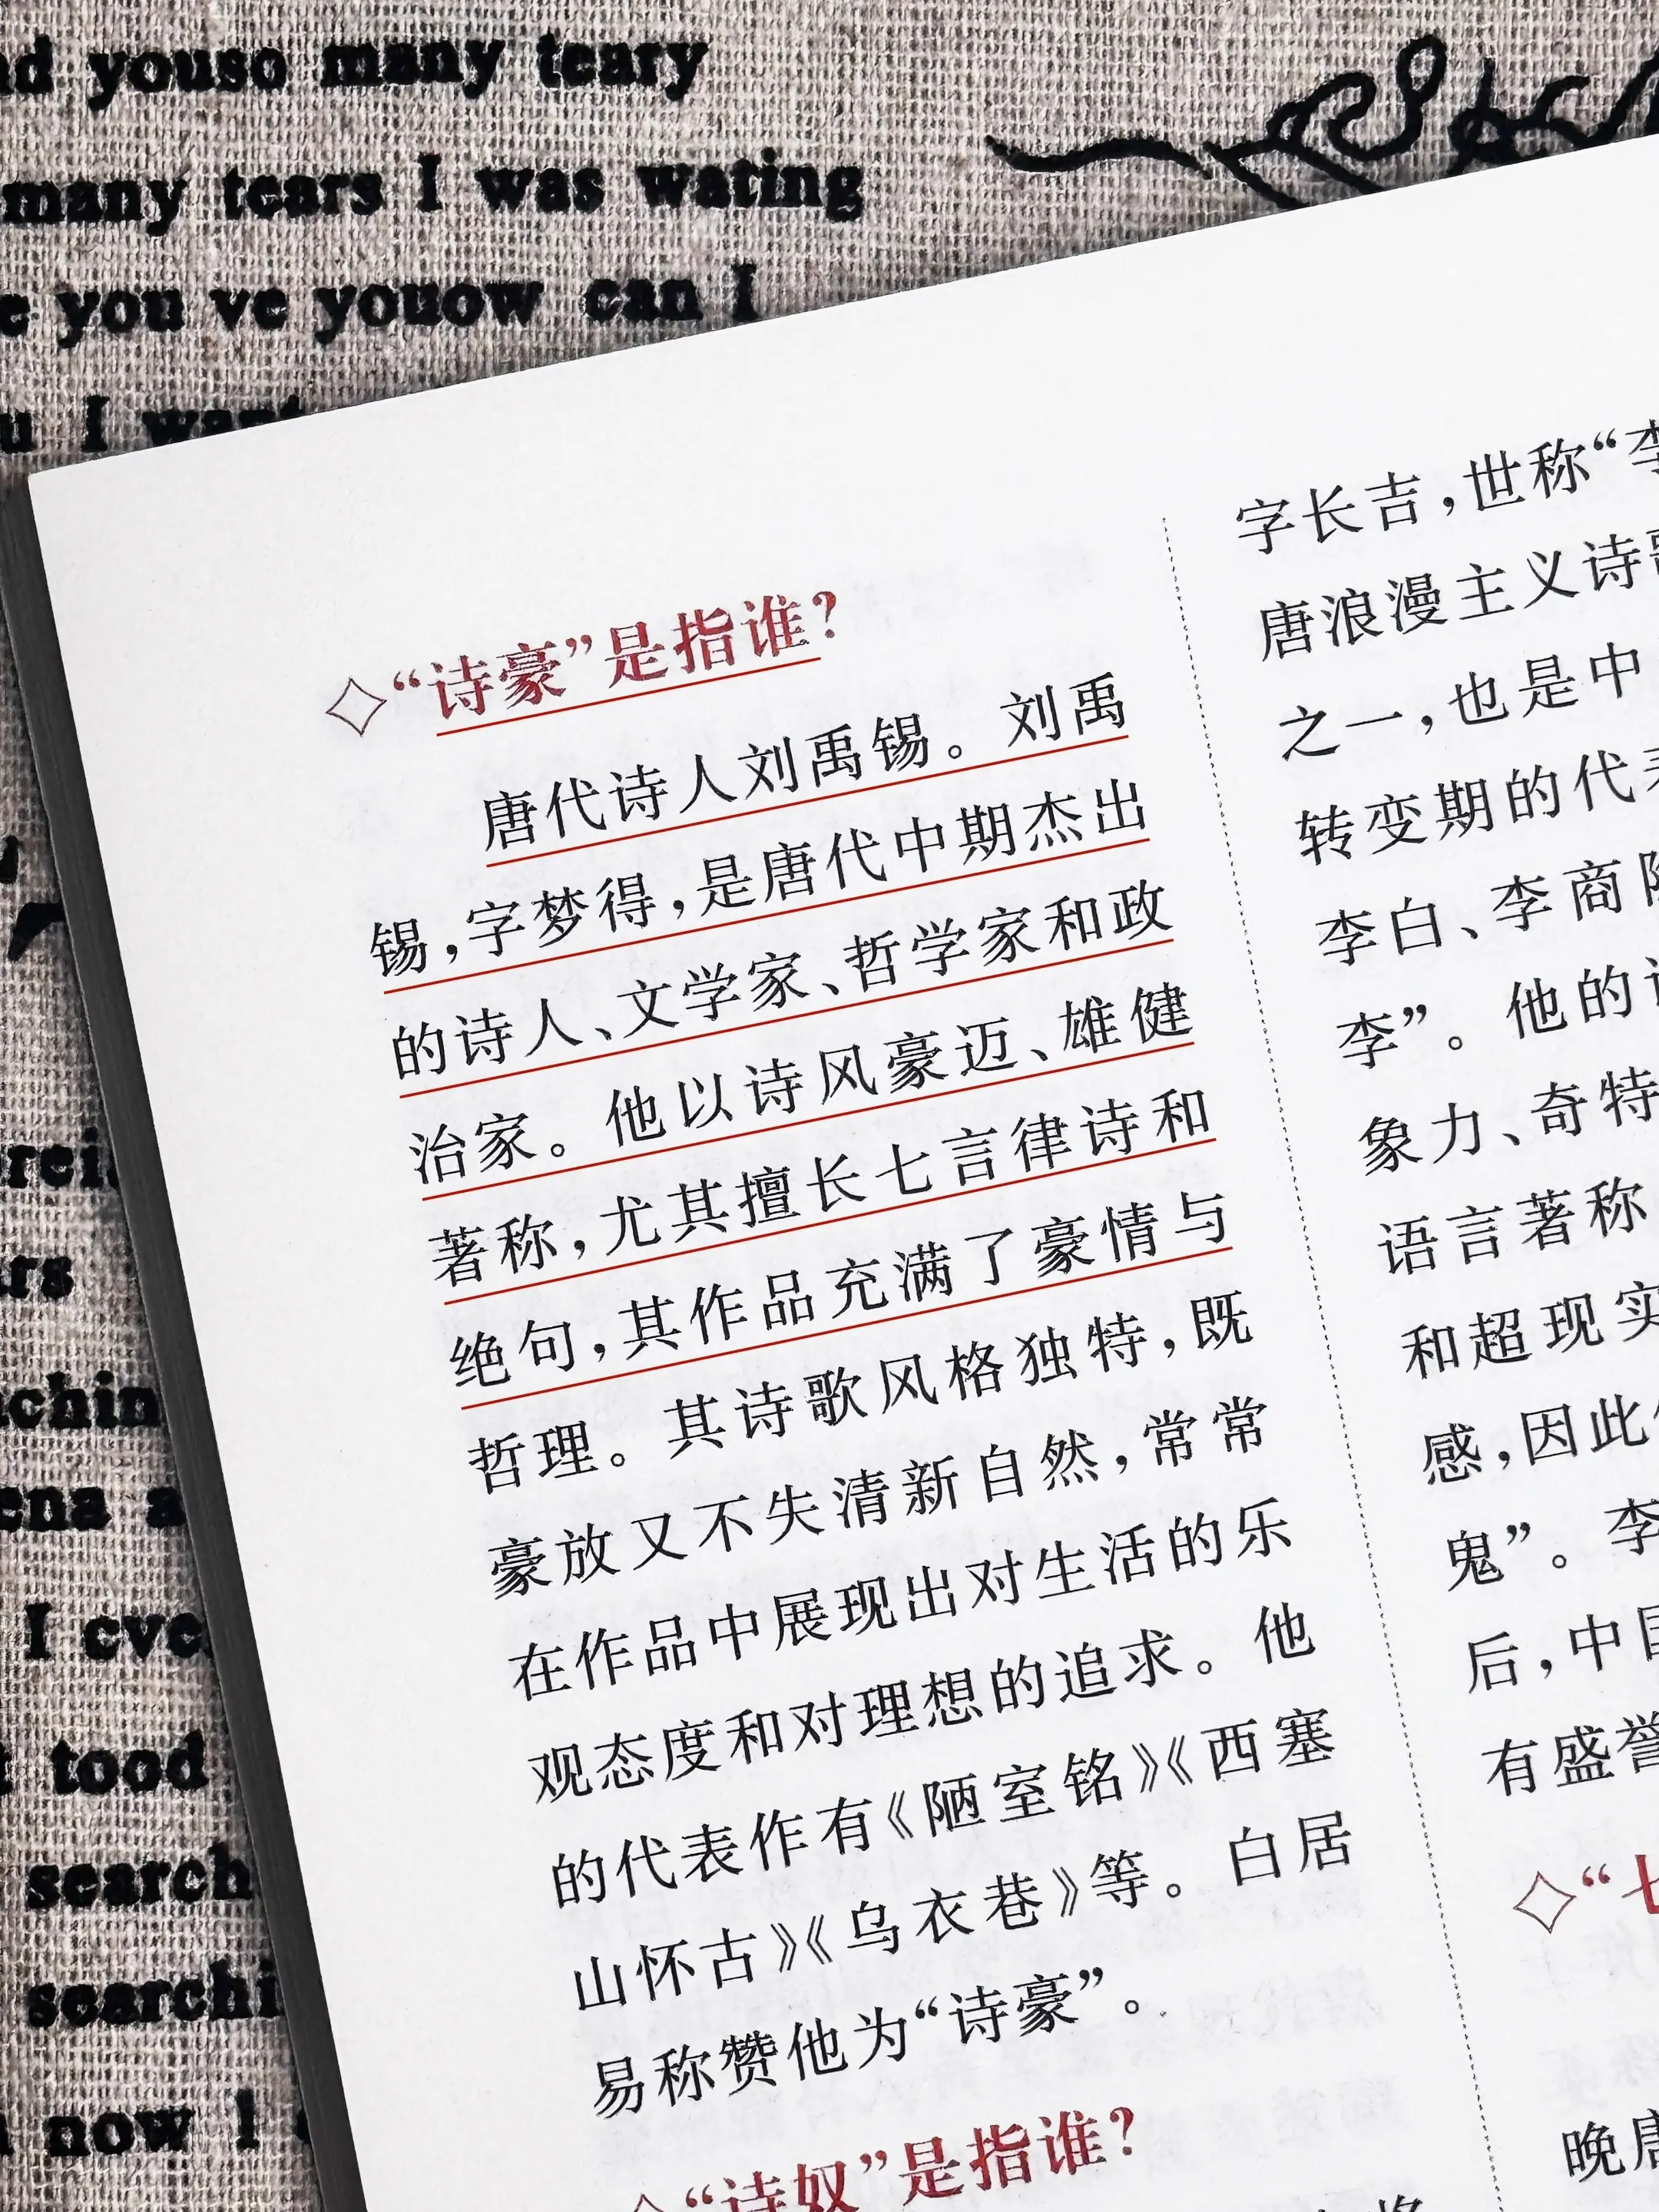 youso many teary
many tears I was wating
you ve youow can I
I
◇“诗豪”是指谁?
唐代诗人刘禹锡。刘禹
锡,字梦得,是唐代中期杰出
的诗人、文学家、哲学家和政
治家。他以诗风豪迈、雄健
著称,尤其擅长七言律诗和
绝句,其作品充满了豪情与
哲理。其诗歌风格独特,既
豪放又不失清新自然,常常
在作品中展现出对生活的乐
观态度和对理想的追求。他
的代表作有《陋室铭》《西塞
山怀古》《乌衣巷》等。白居
易称赞他为“诗豪”。
“诗奴”是指谁?
字长吉,世称“李
唐浪漫主义诗
之一,也是中
转变期的代
李白、李商
李”。他的
象力、奇特
语言著称
和超现实
感,因此
鬼”。李
后,中国
有盛誉
◇“七
晚唐
I
tood
search
now I